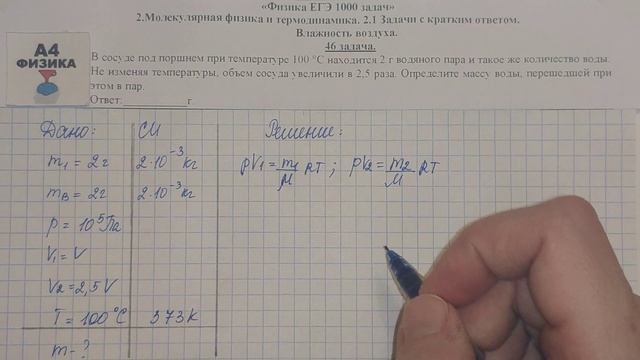 «Физика ЕГЭ 1000 задач»
2.Молекулярная физика и термодинамика. 2.1 Задачи с кратким ответом.
Влажность воздуха.
46 задача.
А4
ФИЗИКА
В сосуде под поршнем при температуре 100 °С находится 2 г водяного пара и такое же количество воды.
Не изменяя температуры, объем сосуда увеличили в 2,5 раза. Определите массу воды, перешедшей при
этом в пар.
Ответ:____________ г.
Дано: СИ Решение:
m₁ = 2г 2·10⁻³кг pV₁ = m₁/M RT ; pV₂ = m₂/M RT
mв = 2г 2·10⁻³кг
p = 10⁵Па
V₁ = V
V₂ = 2,5V
T = 100°C 373K
m - ?